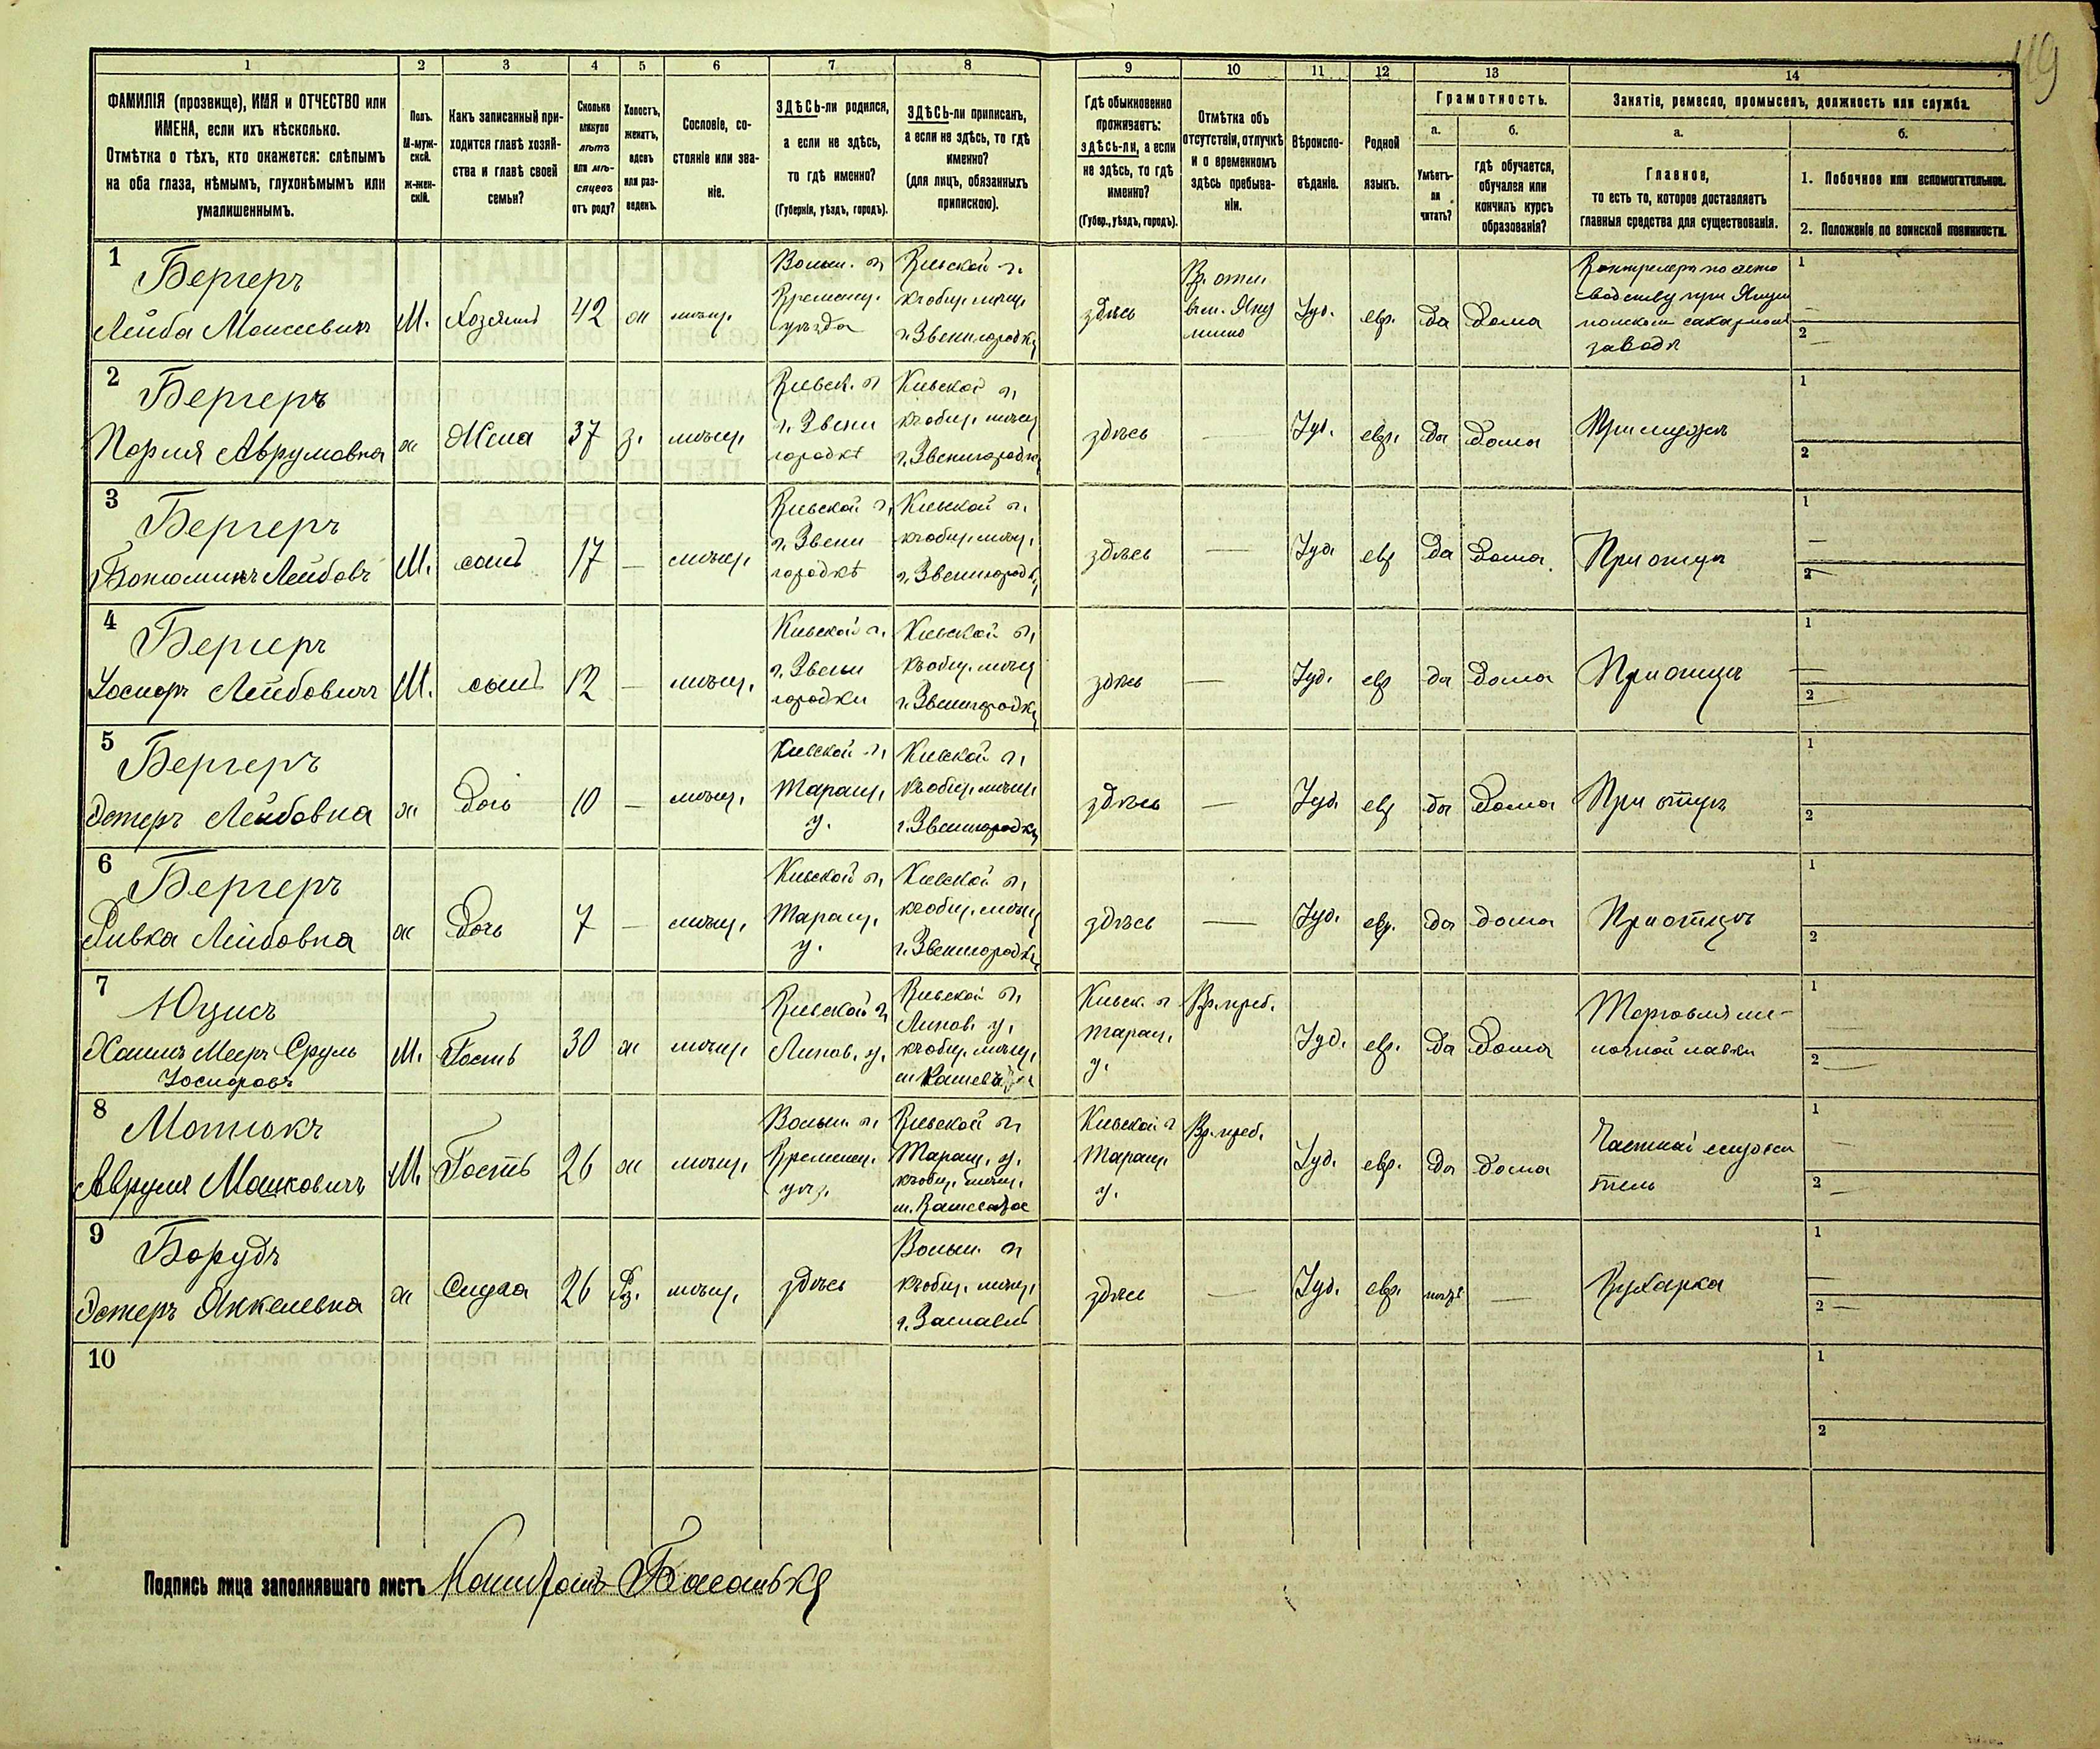 119
1 2 3 4 5 6 7 8 9 10 11 12 13 14
ФАМИЛІЯ (прозвище), ИМЯ и ОТЧЕСТВО или
ИМЕНА, если ихъ нѣсколько.
Отмѣтка о тѣхъ, кто окажется: слѣпымъ
на оба глаза, нѣмымъ, глухонѣмымъ или
умалишеннымъ.
Полъ.
М-муж-
ской.
ж-жен-
скій.
Какъ записанный при-
ходится главѣ хозяй-
ства и главѣ своей
семьи?
Сколько
минуло
лѣтъ
или мѣ-
сяцевъ
отъ роду?
Холостъ,
женатъ,
вдовъ
или раз-
веденъ.
Сословіе, со-
стояніе или зва-
ніе.
ЗДѢСЬ-ли родился,
а если не здѣсь,
то гдѣ именно?
(Губернія, уѣздъ, городъ).
ЗДѢСЬ-ли приписанъ,
а если не здѣсь, то гдѣ
именно?
(для лицъ, обязанныхъ
припискою).
Гдѣ обыкновенно
проживаетъ:
здѣсь-ли, а если
не здѣсь, то гдѣ
именно?
(Губер., уѣздъ, городъ).
Отмѣтка объ
отсутствіи, отлучкѣ
и о временномъ
здѣсь пребыва-
ніи.
Вѣроиспо-
вѣданіе.
Родной
языкъ.
Грамотность.
а.
Умѣетъ-
ли
читать?
б.
гдѣ обучается,
обучался или
кончилъ курсъ
образованія?
Занятіе, ремесло, промыселъ, должность или служба.
а.
Главное,
то есть то, которое доставляетъ
главныя средства для существованія.
б.
1. Побочное или вспомогательное.
2. Положеніе по воинской повинности.
1
Бергеръ
Лейба Моисеевичъ
М.
Хозяинъ
42
ж
мѣщ.
Волын. г.
Кременец.
уѣзда
Кіевской г.
къ общ. мѣщ.
г. Звенигородки
здѣсь
Вр. отл.
Іуд.
евр.
да
дома
заводѣ
1
2
2
Бергеръ
Аврумовна
ж
Жена
37
з.
мѣщ.
Кіевск. г.
г. Звени
городкѣ
Кіевской г.
къ общ. мѣщ.
г. Звенигородки
здѣсь
—
Іуд.
евр.
да
дома
При мужѣ
1
2
3
Бергеръ
Лейбовъ
М.
сынъ
17
—
мѣщ.
Кіевской г.
г. Звени
городкѣ
Кіевской г.
къ общ. мѣщ.
г. Звенигородки
здѣсь
—
Іуд.
евр
да
дома.
При отцѣ
1
2
4
Бергеръ
Іосифъ Лейбовичъ
М.
сынъ
12
—
мѣщ.
Кіевской г.
г. Звени
городки
Кіевской г.
къ общ. мѣщ.
г. Звенигородки
здѣсь
—
Іуд.
евр
да
дома
При отцѣ
1
2
5
Бергеръ
Эстеръ Лейбовна
ж
Дочь
10
—
мѣщ.
Кіевской г.
Таращ.
у.
Кіевской г.
къ общ. мѣщ.
г. Звенигородки
здѣсь
—
Іуд.
евр
да
дома
При отцѣ
1
2
6
Бергеръ
Ривка Лейбовна
ж
Дочь
7
—
мѣщ.
Кіевской г.
Таращ.
у.
Кіевской г.
къ общ. мѣщ.
г. Звенигородки
здѣсь
—
Іуд.
евр.
да
дома
При отцѣ
1
2
7
Юцисъ
Хаимъ Мееръ Сруль
Іосифовъ
М.
Гость
30
ж
мѣщ.
Кіевской г.
Липов. у.
Кіевской г.
Липов. у.
къ общ. мѣщ.
Кіевск. г.
Таращ.
у.
Вр. преб.
Іуд.
евр.
да
дома
Торговля ме-
лочной лавки
1
2
8
Мотюкъ
Аврумъ Мошковичъ
М.
Гость
26
ж
мѣщ.
Волын. г.
Кременец.
уѣз.
Кіевской г.
Таращ. у.
къ общ. мѣщ.
Кіевской г
Таращ.
у.
Вр. преб.
Іуд.
евр.
да
дома
Частный учи
тель
1
2
9
Борудъ
Эстеръ Янкелевна
ж
Слуга
26
Рз.
мѣщ.
здѣсь
Волын. г.
къ общ. мѣщ.
г. Заславля
здѣсь
—
Іуд.
евр.
—
Кухарка
1
2
10
1
2
Подпись лица заполнявшаго листъ